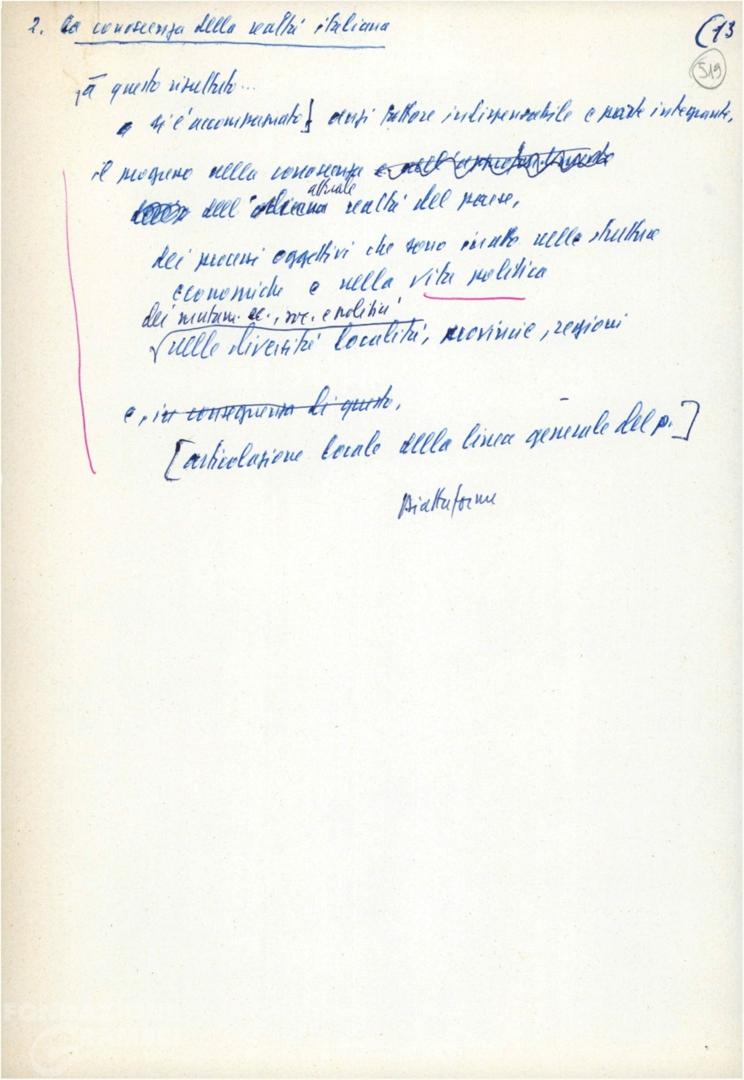 2. La conoscenza della realtà italiana
(13
519
A questo risultato...
si è accompagnato} anzi fattore indispensabile e parte integrante,
il progresso nella conoscenza e nell'approfondimento
attuale
dell' italiana realtà del paese,
dei processi oggettivi che sono in atto nella struttura
economiche e nella vita politica
dei mutam. ec., soc. e politici
nelle diversità località, provincie, regioni
e, in conseguenza di questo,
[articolazione locale della linea generale del p.]
Piattaforme
FONDAZIONE
GRAMSCI